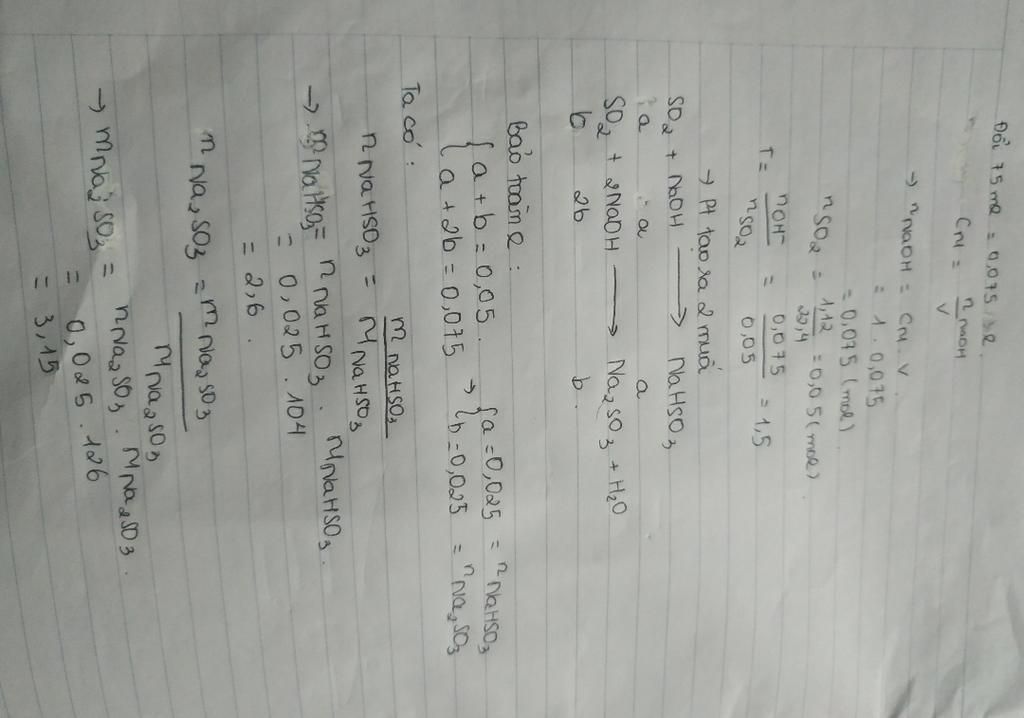 Đổi 75 ml = 0,075 lít
CM = nNaOH / V
→ nNaOH = CM . V
= 1 . 0,075
= 0,075 (mol)
nSO2 = 1,12 / 22,4 = 0,05 (mol)
T = nOH- / nSO2 = 0,075 / 0,05 = 1,5
→ Pt tạo ra 2 muối
SO2 + NaOH → NaHSO3
a a a
SO2 + 2NaOH → Na2SO3 + H2O
b 2b b
Bảo toàn :
{ a + b = 0,05 → { a = 0,025 = nNaHSO3
{ a + 2b = 0,075 { b = 0,025 = nNa2SO3
Ta có :
nNaHSO3 = mNaHSO3 / MNaHSO3
→ mNaHSO3 = nNaHSO3 . MNaHSO3 .
= 0,025 . 104
= 2,6 .
nNa2SO3 = mNa2SO3 / MNa2SO3
→ mNa2SO3 = nNa2SO3 . MNa2SO3 .
= 0,025 . 126
= 3,15